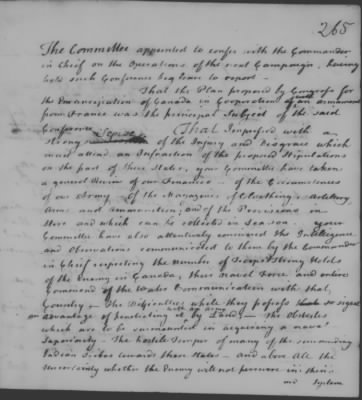 265
The Committee appointed to confer with the Commander
in Chief on the Operations of the next Campaign, having
held such Conference beg leave to report —
That the Plan proposed by Congress for
the Emancipation of Canada in Cooperation with an armament
from France was the principal Subject of the said
Conference.
That Impressed with a
strong Sense of the Injury and Disgrace which
must attend an Infraction of the proposed Stipulations
on the part of these States, your Committee have taken
a general Review of our Finances — of the Circumstances
of our Army — of the Magazines of Cloathing, Artillery
Arms and Ammunition, and of the Provisions in
Store and which can be collected in Season. your
Committee have also attentively considered the Intelligence
and Observations communicated to them by the Commander
in Chief respecting the Number of Troops & strong Holds
of the Enemy in Canada, their Naval Force and entire
Command of the Water Communication with that
Country — The Difficulties while they possess so signal
an advantage of penetrating it with an army by Land; — the Obstacles
which are to be surmounted in acquiring a naval
Superiority — The hostile Temper of many of the surrounding
Indian Tribes towards these States — and above All the
Uncertainty whether the Enemy will not persevere in their
System